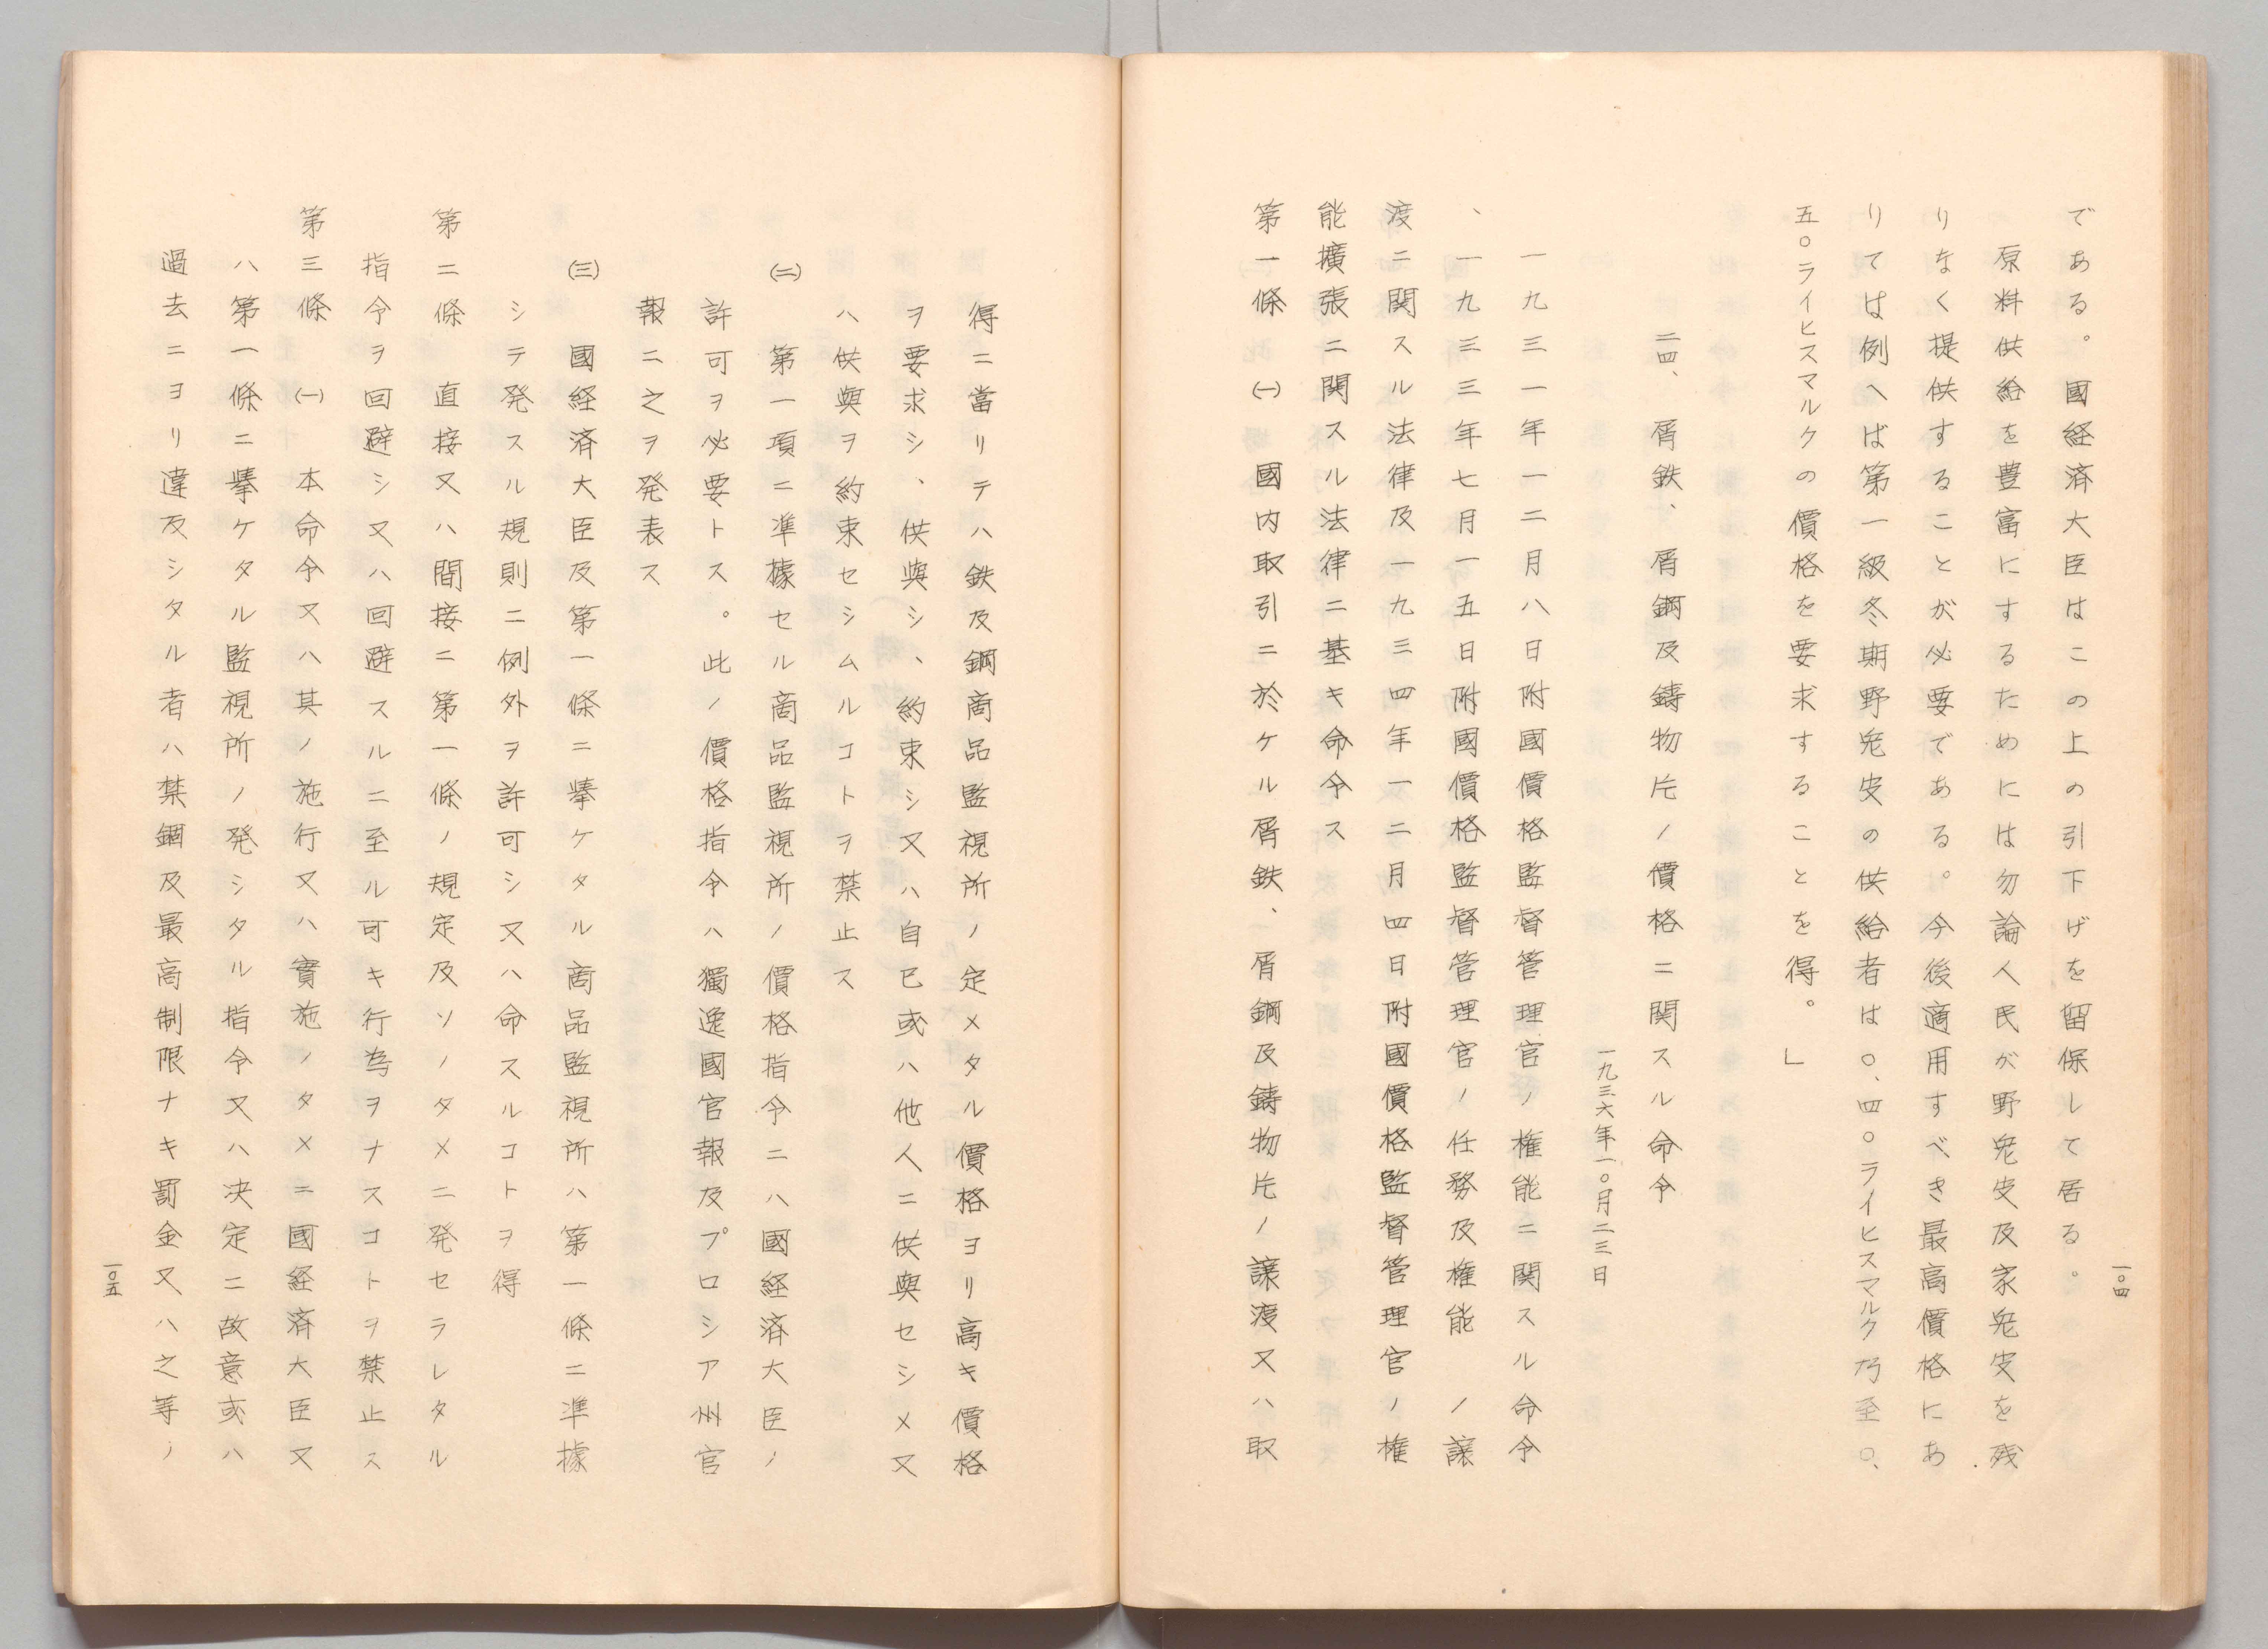 一〇四
である。國経済大臣はこの上の引下げを留保して居る。
原料供給を豊富にするためには勿論人民が野兎皮及家兎皮を残
りなく提供することが必要である。今後適用すべき最高價格にあ
りては例へば第一級冬期野兎皮の供給者は〇、四〇ライヒスマルク乃至〇、
五〇ライヒスマルクの價格を要求することを得。」
二四、屑鉄、屑鋼及鋳物片ノ價格ニ関スル命令
一九三六年一〇月二三日
一九三一年一二月八日附國價格監督管理官ノ権能ニ関スル命令
、一九三三年七月一五日附國價格監督管理官ノ任務及権能ノ譲
渡ニ関スル法律及一九三四年一二月四日附國價格監督管理官ノ権
能擴張ニ関スル法律ニ基キ命令ス
第一條 ㈠ 國内取引ニ於ケル屑鉄、屑鋼及鋳物片ノ譲渡又ハ取
得ニ當リテハ鉄及鋼商品監視所ノ定メタル價格ヨリ高キ價格
ヲ要求シ、供與シ、約束シ又ハ自己或ハ他人ニ供與セシメ又
ハ供與ヲ約束セシムルコトヲ禁止ス
㈡ 第一項ニ準據セル商品監視所ノ價格指令ニハ國経済大臣ノ
許可ヲ必要トス。此ノ價格指令ハ獨逸國官報及プロシア州官
報ニ之ヲ発表ス
㈢ 國経済大臣及第一條ニ擧ケタル商品監視所ハ第一條ニ準據
シテ発スル規則ニ例外ヲ許可シ又ハ命スルコトヲ得
第二條 直接又ハ間接ニ第一條ノ規定及ソノタメニ発セラレタル
指令ヲ回避シ又ハ回避スルニ至ル可キ行為ヲナスコトヲ禁止ス
第三條 ㈠ 本命令又ハ其ノ施行又ハ實施ノタメニ國経済大臣又
ハ第一條ニ擧ケタル監視所ノ発シタル指令又ハ決定ニ故意或ハ
過去ニヨリ違反シタル者ハ禁錮及最高制限ナキ罰金又ハ之等ノ
一〇五